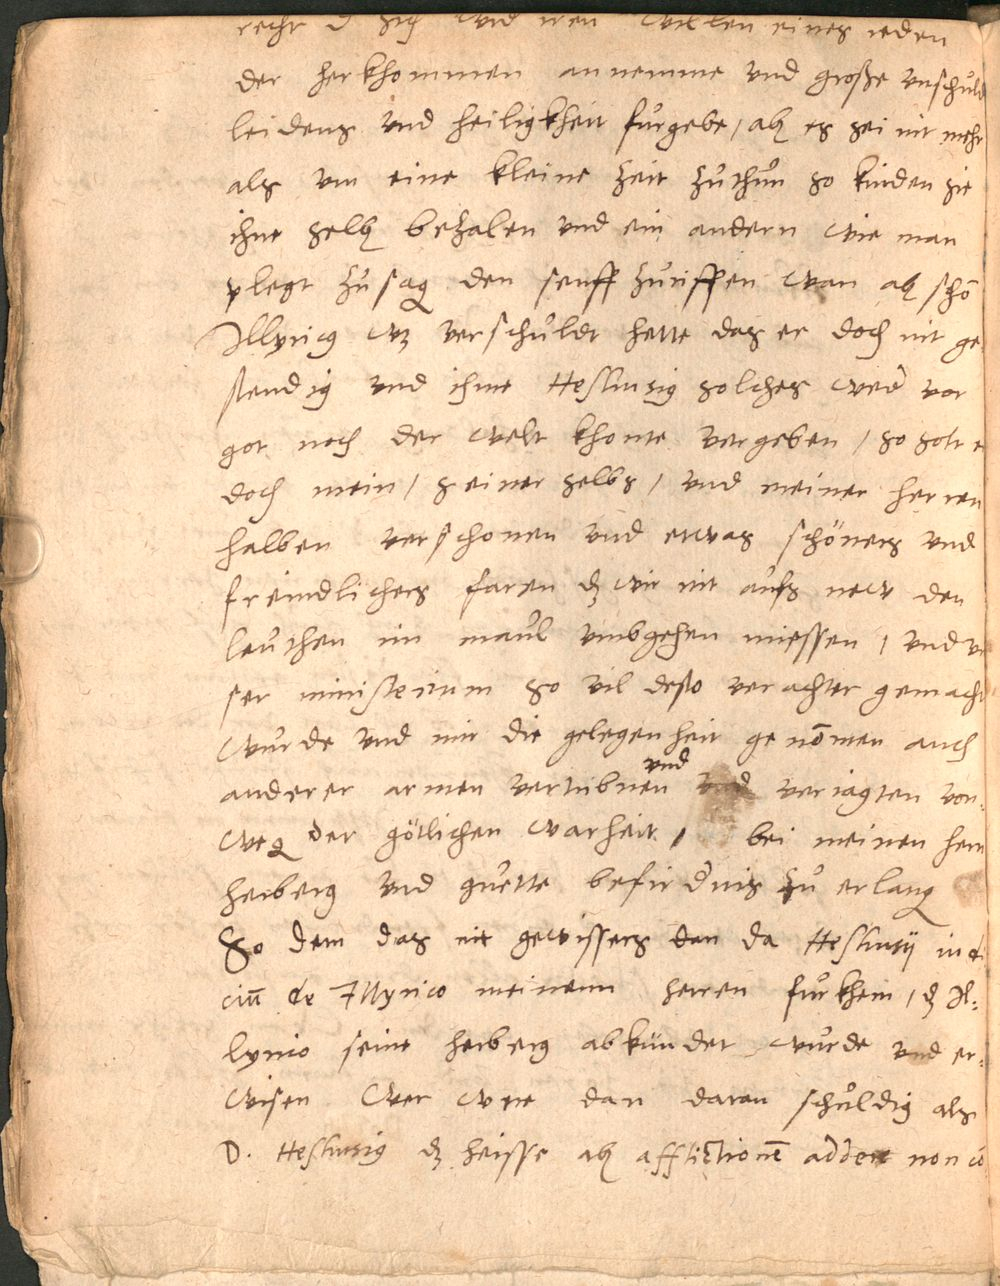 recht d sich und iren willen eines ieden
der herkhommen annemme und große unschuld
leidens und heiligkheit fürgebe, aber es sei nit mehr
als um eine kleine Zeit zůthůn so kinden sie
ihne selber bezalen und ein andern wie man
plegt zů sagen den senff züriffen wan aber schon
Illyricus was verschůldt hette das er doch nit ge
stendig und ihme Heshusius solches weder vor
got noch der welt khonte vergeben, so solt er
doch mein, seiner selbs, und meiner herren
halben verschonen und etwas schöners und
freindlichers faren das wir nit aůfs new den
leůthen im maůl umbgehen miessen, und un
ser ministerium so vil desto verachter gemacht
wůrde und mir die gelegenheit genommen auch
anderer armen vertribnen und veriagten von
wegen der götlichen warheit, bei meinen hern
herberg und gůette befirdernis zů erlangen
So dem das nit gewissers dan da Heshusii iudi
cium de Illyrico meinenn herren fůrkhem, das Il-
lyrico seine herberg abkündet wůrde und er-
wisen wer were dan daran schůldig als
D. Heshusius das heisse aber afflictionem addere non co